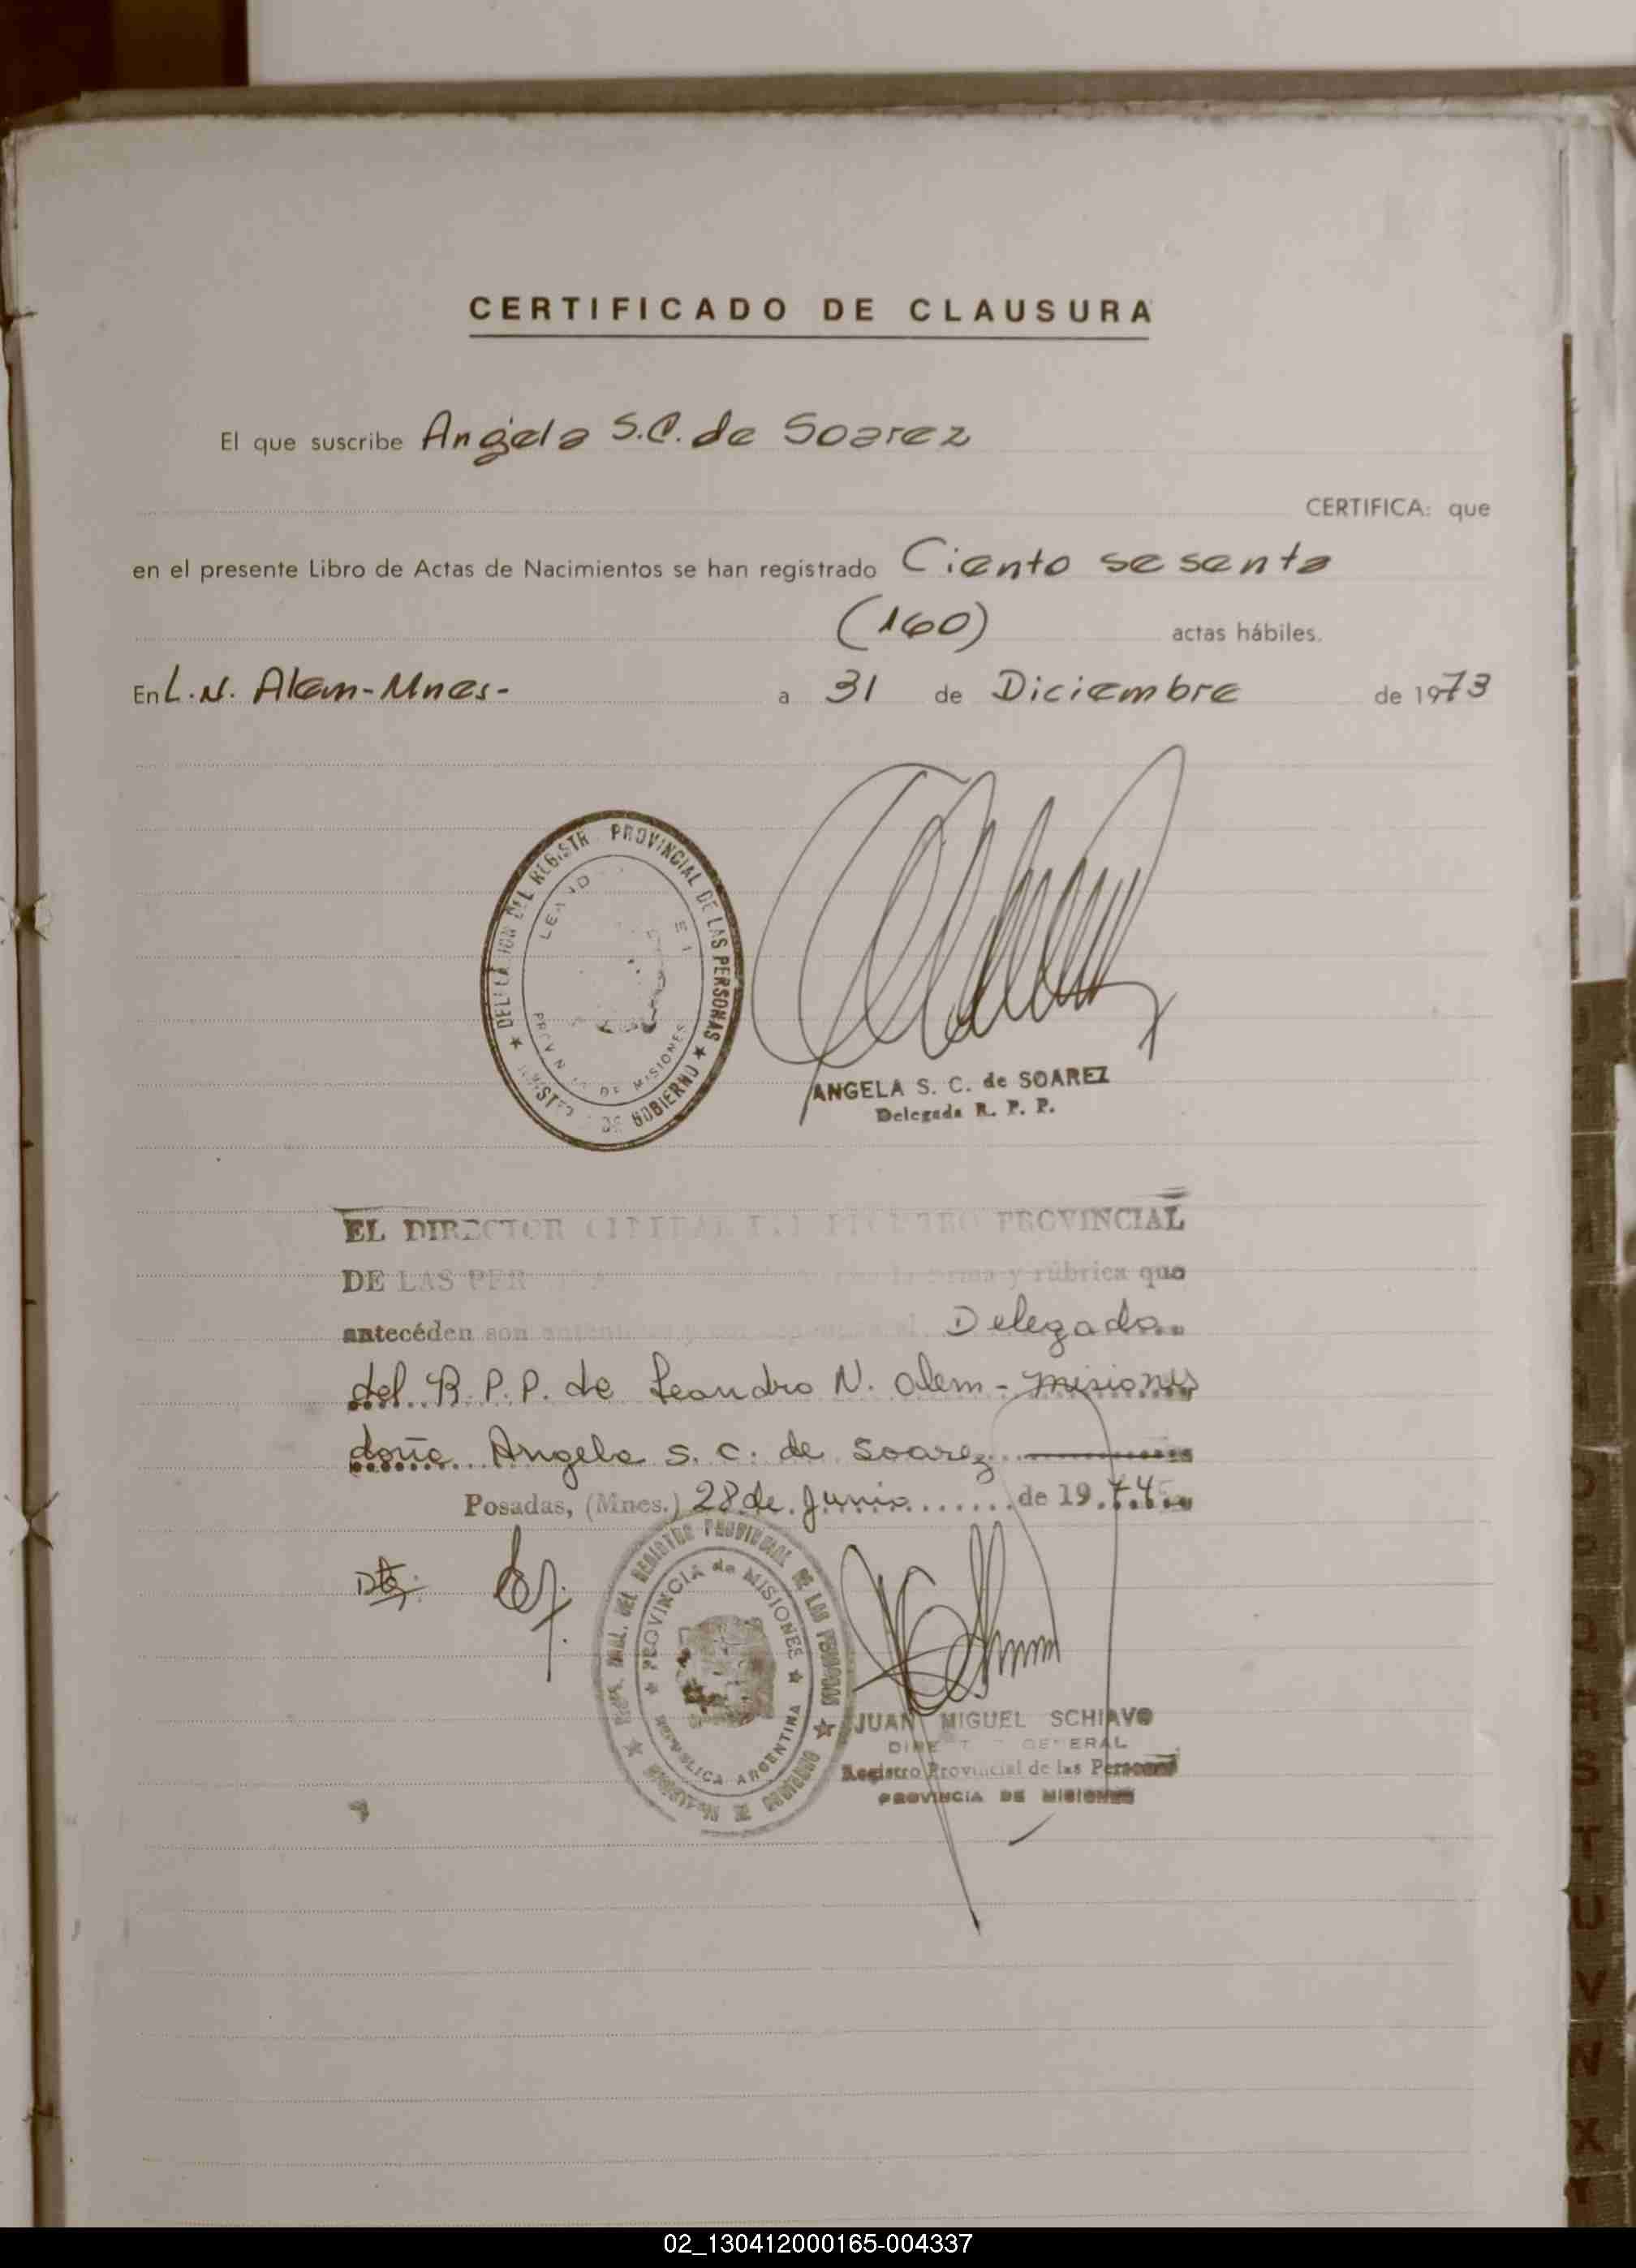 CERTIFICADO DE CLAUSURA
El que suscribe Angela S.C. de Soarez
CERTIFICA: que
en el presente Libro de Actas de Nacimientos se han registrado Ciento sesenta
(160) actas hábiles.
En L.N. Alem-Mnes- a 31 de Diciembre de 1973
PROVINCIAL DE LAS PERSONAS ★
DE GOBIERNO ★
DE MISIONES
ANGELA S. C. de SOAREZ
Delegada R. P. P.
EL DIRECTOR PROVINCIAL
DE LAS firma y rúbrica que
antecéden son Delegada
del R.P.P. de Leandro N. Alem - Misiones
doña Angela S. C. de Soarez
Posadas, (Mnes.) 28 de Junio de 1974
DEL REGISTRO PROVINCIAL DE LAS PERSONAS ★
★ PROVINCIA de MISIONES ★
REPUBLICA ARGENTINA
JUAN MIGUEL SCHIAVO
GENERAL
Registro Provincial de las Personas
PROVINCIA DE MISIONES
S
T
U
V
X
Y
02_130412000165-004337